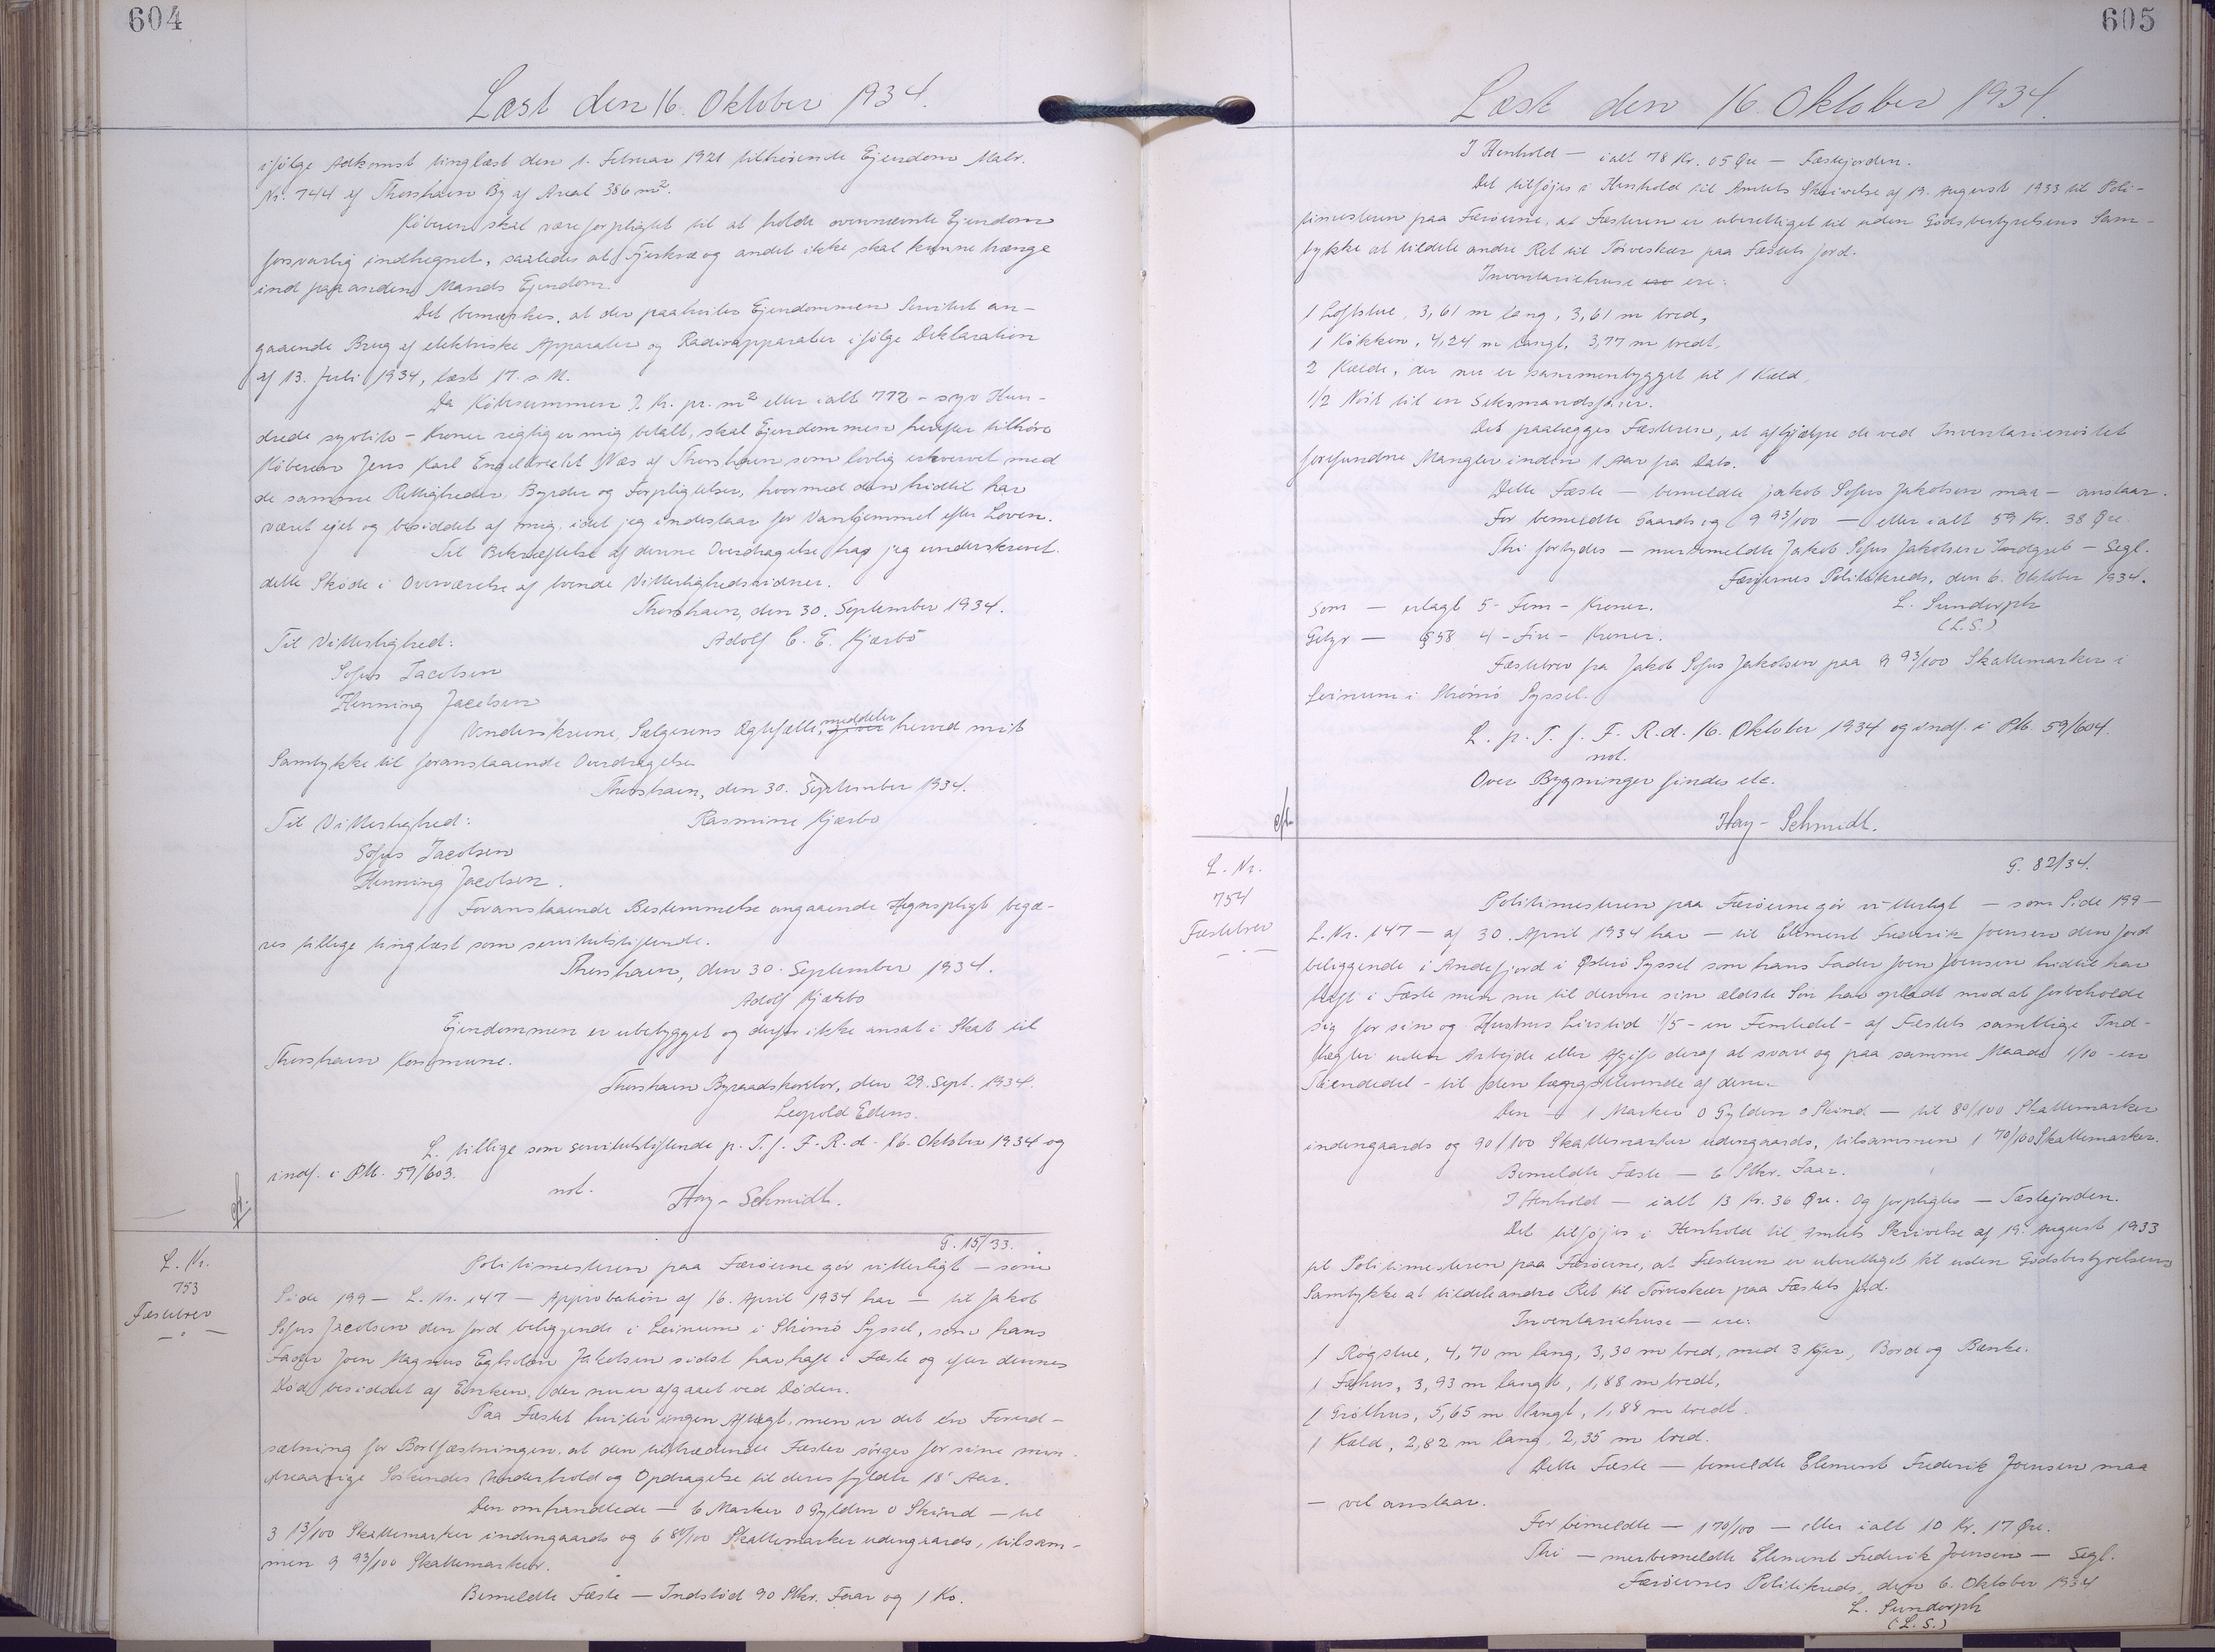 604
Læst den 16. Oktober 1934.
ifølge Adkomst tinglæst den 1. Februar 1921 tilhørende Ejendom Matr.
Nr. 744 af Thorshavn By af Areal 386 m².
Køberen skal være forpligtet til at holde ovennævnte Ejendom
forsvarlig indhegnet, saaledes at Fjerkræ og andet ikke skal kunne trænge
ind paa anden Mands Ejendom.
Det bemærkes, at der paahviler Ejendommen Servitut an-
gaaende Brug af elektriske Apparater og Radioapparater ifølge Deklaration
af 13. Juli 1934, læst 17. s. M.
Da Købesummen 2 Kr. pr. m² eller ialt 772 - syv Hun-
drede syvtito - Kroner rigtig er mig betalt, skal Ejendommen herefter tilhøre
Køberen Jens Karl Engelbrecht Næs af Thorshavn som lovlig erhvervet med
de samme Rettigheder, Byrder og Forpligtelser, hvormed den hidtil har
været ejet og besiddet af mig, idet jeg indestaar for Vanhjemmel efter Loven.
Til Bekræftelse af denne Overdragelse har jeg underskrevet
dette Skøde i Overværelse af tvende Vitterlighedsvidner.
Thorshavn, den 30. September 1934.
Til Vitterlighed: Adolf C. E. Kjærbo
Sofus Jacobsen
Henning Jacobsen
Underskrevne, Sælgerens Ægtefælle, meddeler herved mit
Samtykke til foranstaaende Overdragelse
Thorshavn, den 30. September 1934.
Til Vitterlighed: Rasmine Kjærbo
Sofus Jacobsen
Henning Jacobsen.
Foranstaaende Bestemmelse angaaende Hegnspligt begæ-
res tillige tinglæst som servitutstiftende.
Thorshavn, den 30. September 1934.
Adolf Kjærbo
Ejendommen er ubebygget og derfor ikke ansat i Skat til
Thorshavn Kommune.
Thorshavn Byraadskontor, den 29. Sept. 1934.
Leopold Edens.
L. tillige som servitutstiftende p. T. f. F. R. d. 16. Oktober 1934 og
indf. i Ptb. 59/603.
not. Hay-Schmidt.
G. 15/33.
L. Nr.
753
Fæstebrev
Politimesteren paa Færøerne gør vitterligt - som
Side 199 - L. Nr. 147 - Approbation af 16. April 1934 har - til Jakob
Sofus Jacobsen den Jord beliggende i Leinum i Strømø Syssel, som hans
Fader Joen Magnus Egholm Jakobsen sidst har haft i Fæste og efter dennes
Død besiddet af Enken, der nu er afgaaet ved Døden.
Paa Fæstet hviler ingen Aftægt, men er det en Forud-
sætning for Bortfæstningen, at den tiltrædende Fæster sørger for sine min-
dreaarige Søskendes Underhold og Opdragelse til deres fyldte 18' Aar.
Den omhandlede - 6 Marker 0 Gylden 0 Skind - til
3 13/100 Skattemarker indengaards og 6 80/100 Skattemarker udengaards, tilsam-
men 9 93/100 Skattemarker.
Bemeldte Fæste - Indstød 90 Stkr. Faar og 1 Ko.
605
Læst den 16. Oktober 1934.
I Henhold - ialt 78 Kr. 05 Øre - Fæstejorden.
Det tilføjes i Henhold til Amtets Skrivelse af 19. August 1933 til Poli-
timesteren paa Færøerne, at Fæsteren er uberettiget til uden Godsbestyrelsens Sam-
tykke at tildele andre Ret til Tørveskær paa Fæstets Jord.
Inventariehuse ere:
1 Loftstue, 3,61 m lang, 3,61 m bred,
1 Køkken, 4,24 m langt, 3,77 m bredt,
2 Kælde, der nu er sammenbygget til 1 Kæld,
1/2 Nøst til en Seksmandsfarer.
Det paalægges Fæsteren, at afhjælpe de ved Inventarienøstet
forefundne Mangler inden 1 Aar fra Dato.
Dette Fæste - bemeldte Jakob Sofus Jakobsen maa - anstaar.
For bemeldte Gaards og 9 93/100 - eller ialt 59 Kr. 38 Øre.
Thi forbydes - merbemeldte Jakob Sofus Jakobsen Indgreb - Segl.
Færøernes Politikreds, den 6. Oktober 1934.
Som - erlagt 5 - Fem - Kroner. L. Sundorph
(L. S.)
Gebyr - § 58 4 - Fire - Kroner.
Fæstebrev fra Jakob Sofus Jakobsen paa 9 93/100 Skattemarker i
Leinum i Strømø Syssel.
L. p. T. f. F. R. d. 16. Oktober 1934 og indf. i Ptb. 59/604.
not.
Over Bygninger findes etc.
Hay-Schmidt.
G. 82/34.
L. Nr.
754
Fæstebrev
Politimesteren paa Færøerne gør vitterligt - som Side 199 -
L. Nr. 147 - af 30. April 1934 har - til Clement Frederik Joensen den Jord
beliggende i Andefjord i Østerø Syssel som hans Fader Joen Joensen hidtil har
haft i Fæste men nu til denne sin ældste Søn har opladt mod at forbeholde
sig for sin og Hustrus Livstid 1/5 - en Femtedel - af Fæstets samtlige Ind-
tægter uden Arbejde eller Afgift deraf at svare og paa samme Maade 1/10 - en
Tiendedel - til den længstlevende af dem.
Den - 1 Marker 0 Gylden 0 Skind - til 80/100 Skattemarker
indengaards og 90/100 Skattemarker udengaards, tilsammen 1 70/100 Skattemarker.
Bemeldte Fæste - 6 Stkr. Faar.
I Henhold - ialt 13 Kr. 36 Øre. Og forpligtes - Fæstejorden.
Det tilføjes i Henhold til Amtets Skrivelse af 19. August 1933
til Politimesteren paa Færøerne, at Fæsteren er uberettiget til uden Godsbestyrelsens
Samtykke at tildele andre Ret til Tørveskær paa Fæstets Jord.
Inventariehuse - ere:
1 Røgstue, 4,70 m lang, 3,30 m bred, med 3 Køjer, Bord og Bænke.
1 Fæhus, 3,93 m langt, 1,88 m bredt,
1 Grothus, 5,65 m langt, 1,88 m bredt.
1 Kæld, 2,82 m lang, 2,35 m bred.
Dette Fæste - bemeldte Clement Frederik Joensen maa
- vel anstaar.
For bemeldte - 1 70/100 - eller ialt 10 Kr. 17 Øre.
Thi - merbemeldte Clement Frederik Joensen - Segl.
Færøernes Politikreds, den 6. Oktober 1934
L. Sundorph
(L. S.)